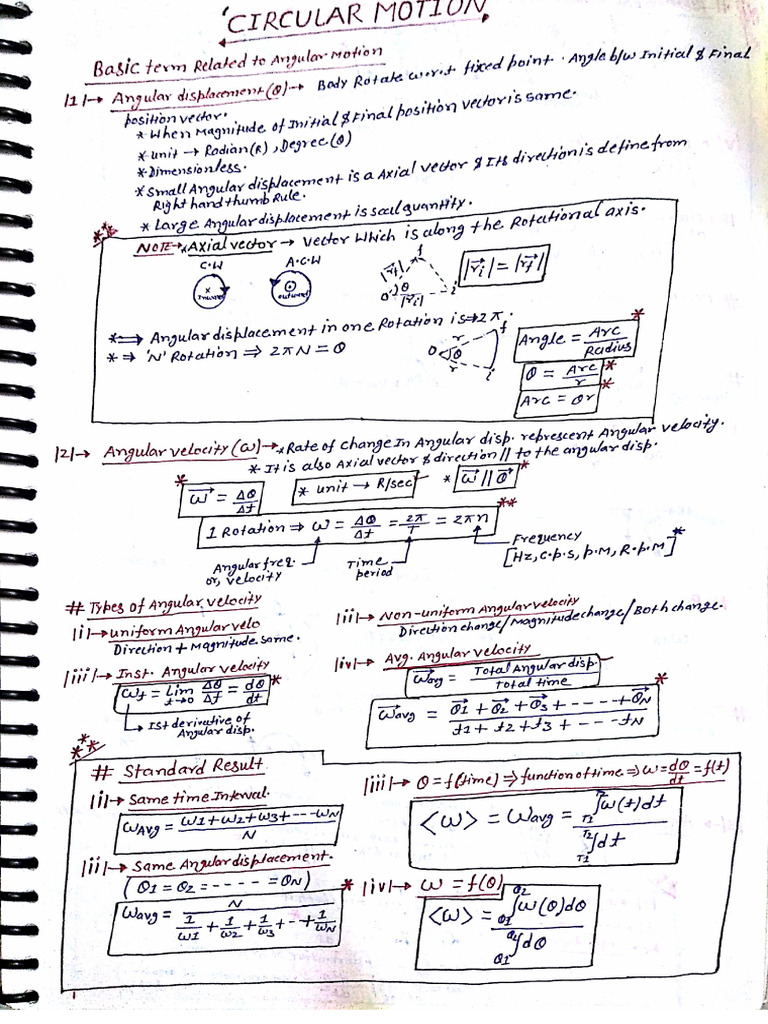 'CIRCULAR MOTION'
Basic term Related to Angular Motion
|1|→ Angular displacement(θ)→ Body Rotate w.r.t fixed point. Angle b/w Initial & Final
position vector.
* When Magnitude of Initial & Final position vector is same.
* unit → Radian(R), Degree(θ)
* Dimensionless.
* Small Angular displacement is a Axial vector & Its direction is define from
Right hand thumb Rule.
* Large Angular displacement is scal quantity.
NOTE→ * Axial vector → Vector Which is along the Rotational axis.
C.W A.C.W
x Inward outward
|r⃗f| f O θ |r⃗i| i
|r⃗i| = |r⃗f|
*⟹ Angular displacement in one Rotation is ⇒ 2π.
* ⇒ 'N' Rotation ⇒ 2πN = θ
O θ r r f i
Angle = Arc/Radius *
θ = Arc/r *
Arc = θr *
|2|→ Angular velocity (ω)→ * Rate of change In Angular disp. represcent Angular velocity.
* It is also Axial vector & direction // to the angular disp.
* ω⃗ = Δθ/Δt * unit → R/sec * ω⃗ || θ⃗ *
1 Rotation ⇒ ω = Δθ/Δt = 2π/T = 2πn **
Angular freq. or, velocity
Time period
Frequency
[Hz, C.p.s, p.M, R.p.M] *
# Types of Angular velocity
|i|→ uniform Angular velo
Direction + Magnitude same.
|ii|→ Non-uniform Angular velocity
Direction change/Magnitude change/Both change.
|iii|→ Inst. Angular velocity
ωt = Lim t→0 Δθ/Δt = dθ/dt *
→ Ist derivative of
Angular disp.
|iv|→ Avg. Angular velocity
ω⃗avg = Total Angular disp./Total time
ω⃗avg = (θ⃗1 + θ⃗2 + θ⃗3 + - - - - + θ⃗N)/(t1 + t2 + t3 + - - - - tN) *
# Standard Result
|i|→ Same time Interval.
ωAvg = (ω1+ω2+ω3+---ωN)/N
|ii|→ Same Angular displacement.
(θ1 = θ2 = ----- = θN)
ωavg = N/(1/ω1 + 1/ω2 + 1/ω3 + -- + 1/ωN) *
|iii|→ θ = f(time) ⇒ function of time ⇒ ω = dθ/dt = f(t)
<ω> = ωavg = T1∫T2 ω(t)dt / T1∫T2 dt
|iv|→ ω = f(θ)
<ω> = θ1∫θ2 ω(θ)dθ / θ1∫θ2 dθ